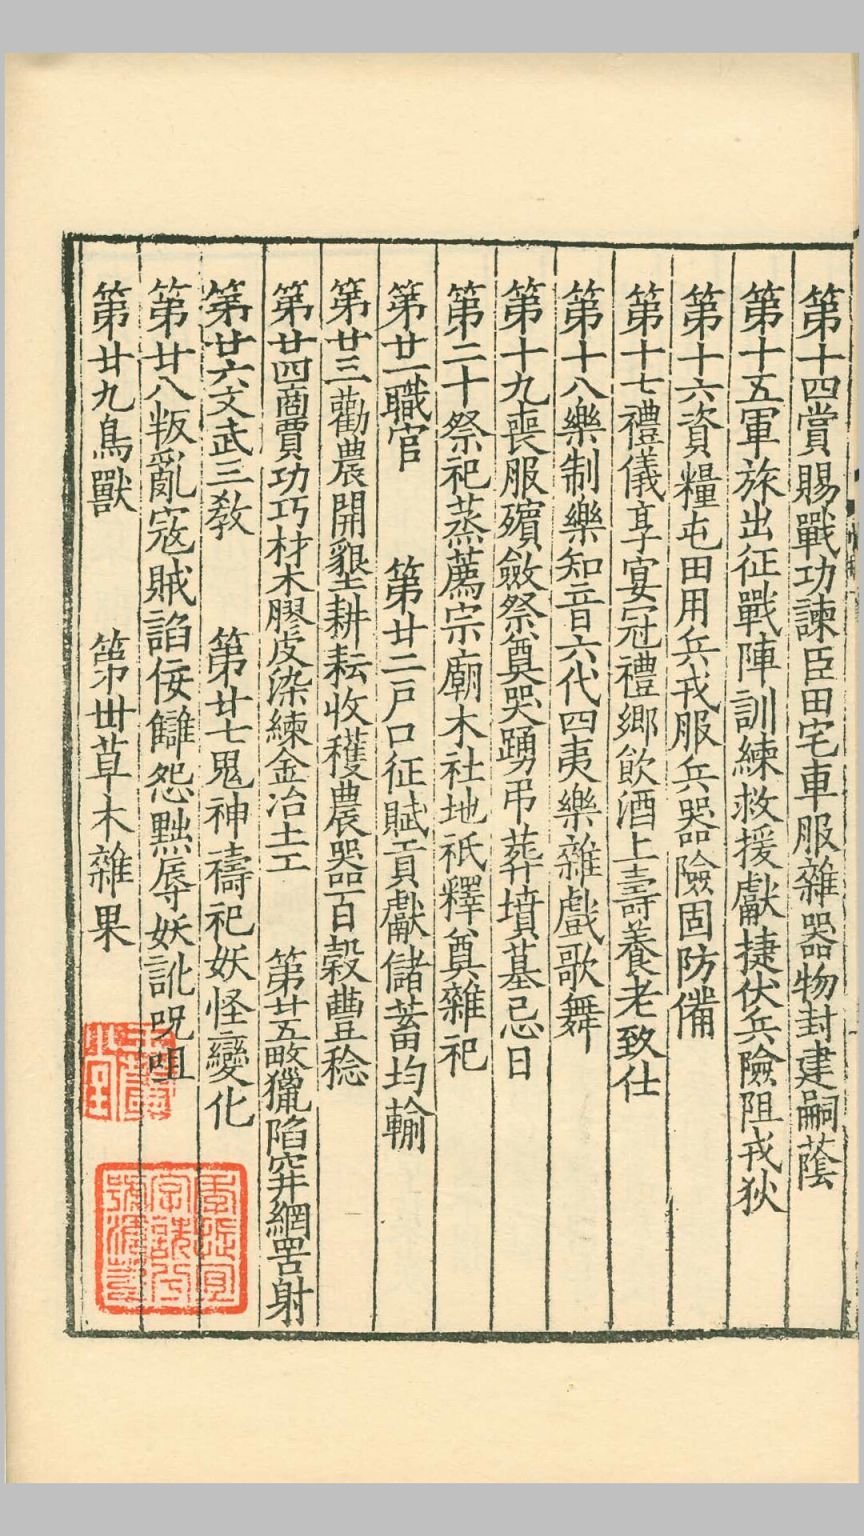 第十四賞賜戰功諫臣田宅車服雜器物封建嗣蔭
第十五軍旅出征戰陣訓練救援獻捷伏兵險阻戎狄
第十六資糧屯田用兵戎服兵器險固防備
第十七禮儀享宴冠禮鄉飲酒上壽養老致仕
第十八樂制樂知音六代四夷樂雜戲歌舞
第十九喪服殯斂祭奠哭踊弔葬墳墓忌日
第二十祭祀蒸薦宗廟木社地祇釋奠雜祀
第廿一職官 第廿二戶口征賦貢獻儲蓄均輸
第廿三勸農開墾耕耘收穫農器百穀豊稔
第廿四商賈功巧材木膠皮染練金冶土工 第廿五畋獵陷穽網罟射
第廿六文武三教 第廿七鬼神禱祀妖怪變化
第廿八叛亂寇賊諂佞讎怨黜辱妖訛呪咀
第廿九鳥獸 第卅草木雜果